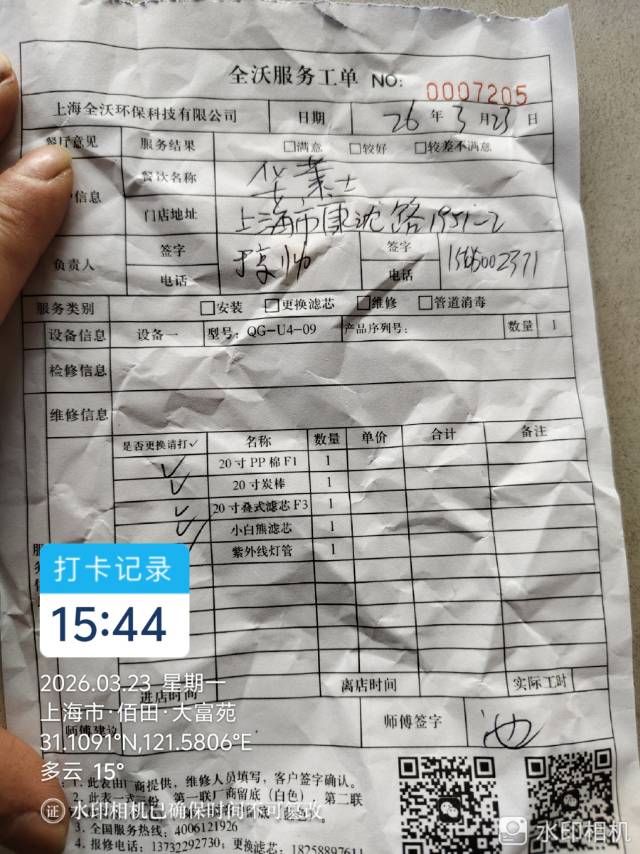 全沃服务工单 NO: 0007205
上海全沃环保科技有限公司 日期 26 年 3 月 23 日
餐厅意见 服务结果 □满意 □较好 □较差不满意
信息 餐饮名称 华莱士
门店地址 上海市康沈路1951-2
负责人 签字 签字
电话 电话
服务类别 □安装 □更换滤芯 □维修 □管道消毒
设备信息 设备一 型号: QG-U4-09 产品序列号: 数量 1
检修信息
维修信息
是否更换请打✓ 名称 数量 单价 合计 备注
✓ 20寸PP棉F1 1
✓ 20寸炭棒 1
✓ 20寸叠式滤芯F3 1
✓ 小白熊滤芯 1
紫外线灯管 1
打卡记录
15:44
2026.03.23 星期一
进店时间 离店时间 实际工时
上海市·佰田·大富苑
师傅建议 师傅签字
31.1091°N,121.5806°E
多云 15°
1. 此表由厂商提供，维修人员填写，客户签字确认。
2. 此表一式二份，第一联厂商留底（白色） 第二联
水印相机已确保时间不可篡改
3. 全国服务热线: 4006121926
4. 报修电话: 13732292730; 更换滤芯: 18258897611
水印相机